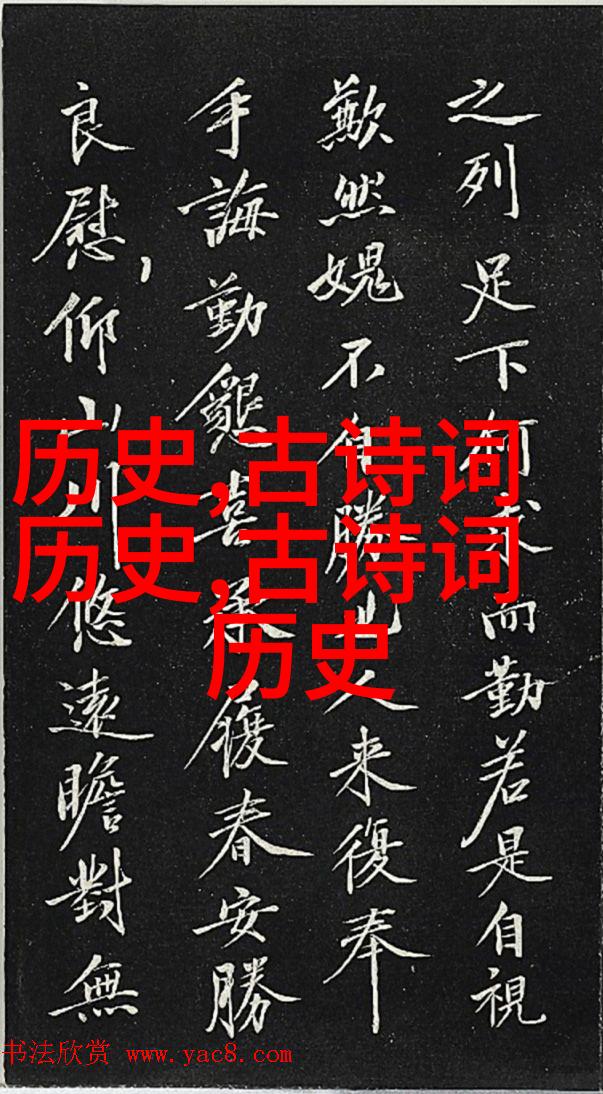 之列足下何求而勤若是自視
歎然媿不自勝也人来復奉
手誨勤懇喜承履春安勝
良慰,仰山川悠遠瞻對無
历史,古诗词
历史,古诗词
历史
书法欣赏 www.yac8.com